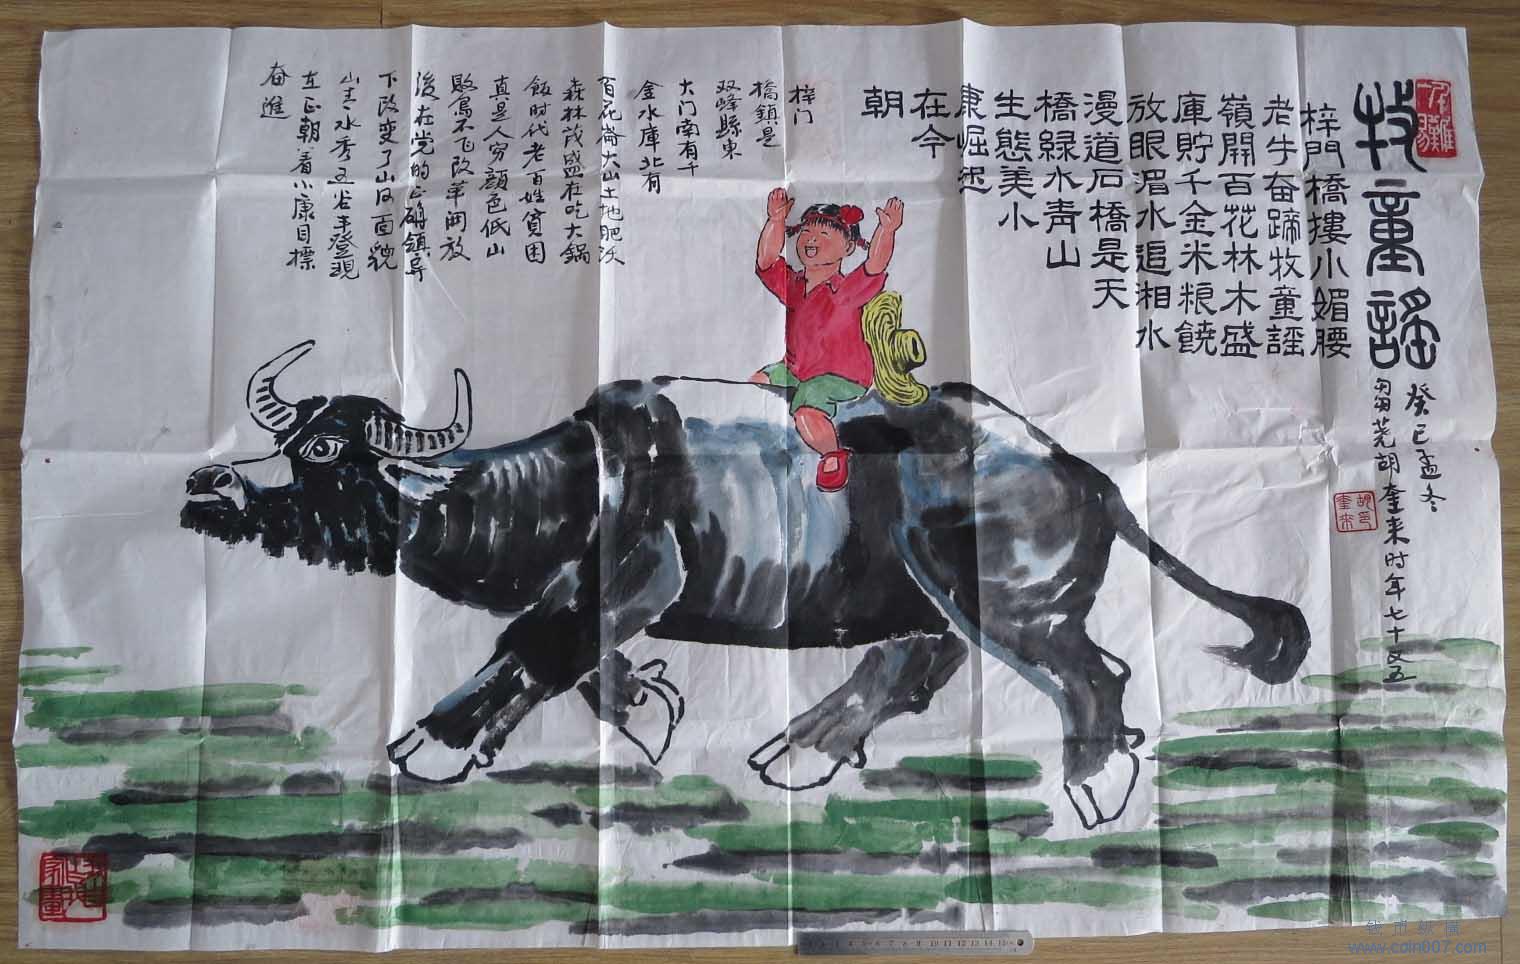 牧童謠
梓門橋摟小媚腰
老牛奋蹄牧童謡
嶺開百花林木盛
庫貯千金米粮饒
放眼湄水追湘水
漫道石橋是天
橋緑水青山
生態美小
康崛起
在今
朝
癸巳孟冬
芻荛胡奎来时年七十又五
梓门
橋鎮是
双峰縣東
大门南有千
金水庫北有
百花崙大山土地肥沃
森林茂盛在吃大鍋
飯时代老百姓貧困
真是人穷顔色低山
敗鳥不飞改革開放
後在党的正确領导
下改变了山河面貌
山青水秀五谷丰登現
在正朝着小康目標
奋進
胡奎来印
钱币纵横
www.coin007.com